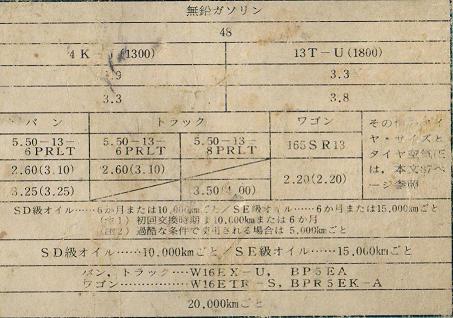 無鉛ガソリン
48
4K-　(1300)　13T-U(1800)
3.3
3.3　3.8
バン　トラック　ワゴン
5.50-13-6PRLT　5.50-13-6PRLT　5.50-13-8PRLT　165SR13
2.60(3.10)　2.60(3.10)
3.25(3.25)　3.50(4.00)　2.20(2.20)
ヤ・サイズと
は、本文
ージ参照
SD級オイル……6か月または10,000kmごと／SE級オイル……6か月または15,000kmごと
(注1) 初回交換時期 10,000kmまたは6か月
(注2) 過酷な条件で使用される場合は 5,000kmごと
SD級オイル……10,000kmごと／SE級オイル……15,000kmごと
バン, トラック……W16EX-U, BP5EA
ワゴン……W16ETR-S, BPR5EK-A
20,000kmごと